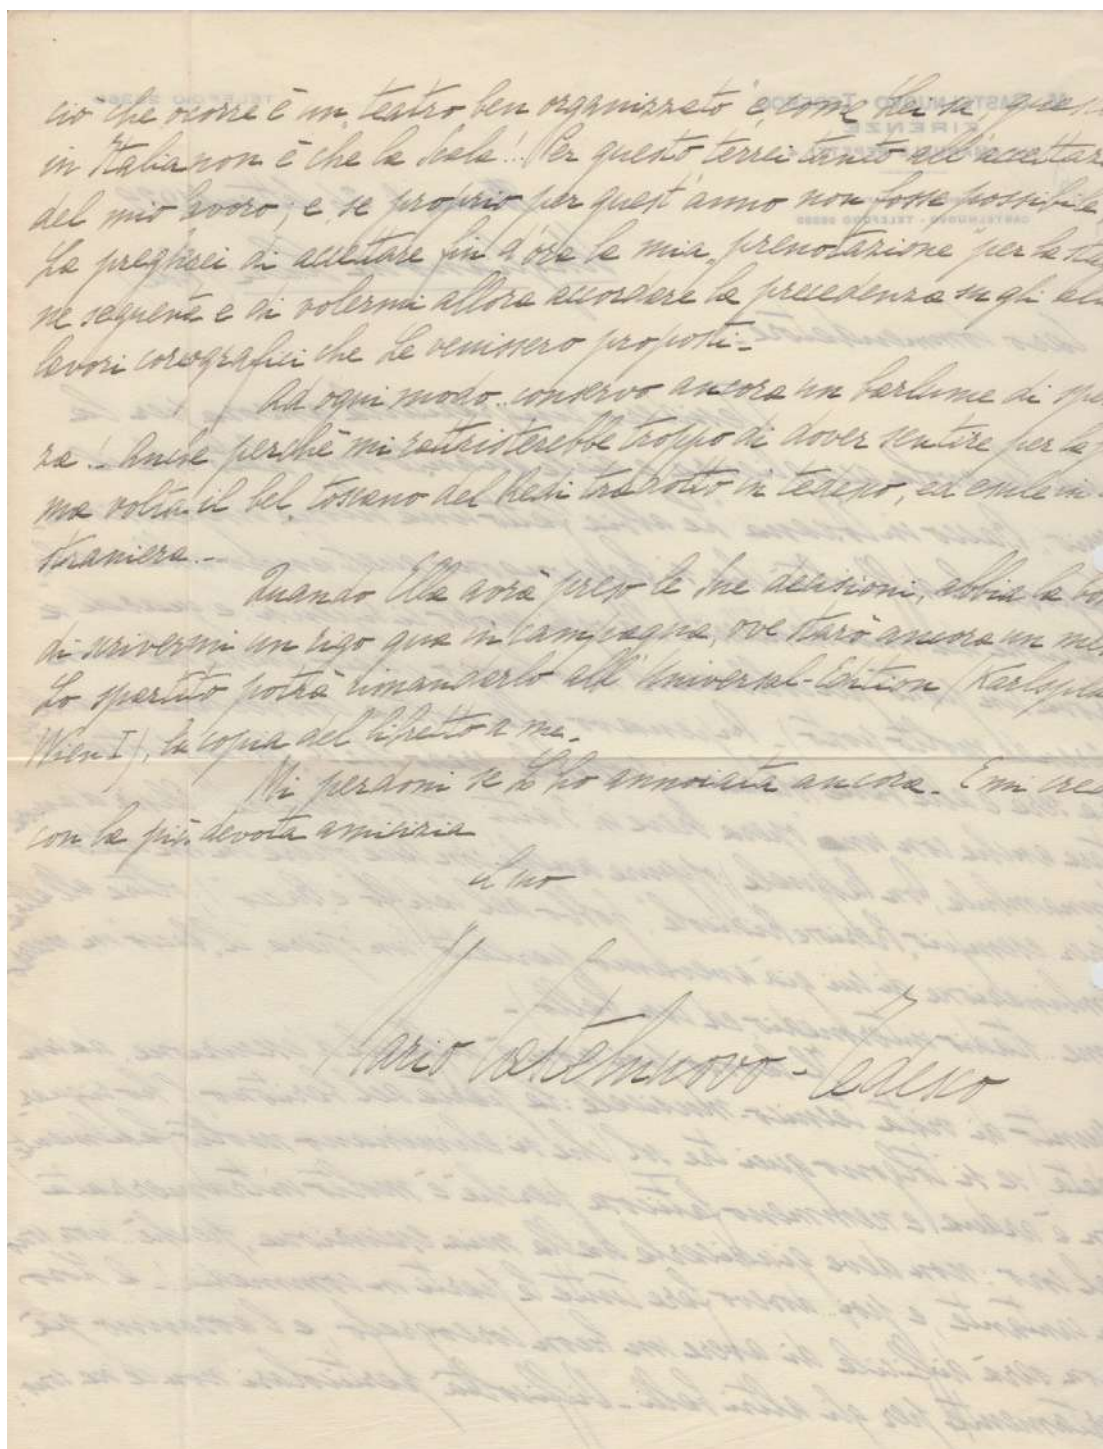 ciò che ocorre è un "teatro ben organizzato" e, come Ella sa, questo
in Italia non è che la Scala! - Per questo terrei tanto all'accettaz
del mio lavoro; e, se proprio per quest'anno non fosse possibile,
La pregherei di accettare fin d'ora la mia "prenotazione" per la sta
ne seguente e di volermi allora accordare la precedenza su gli al
lavori coreografici che Le venissero proposti. -
Ad ogni modo.. conservo ancora un barlume di spe
za! - Anche perchè mi rattristerebbe troppo di dover sentire per la p
ma volta il bel toscano del Redi tradotto in tedesco, ed esule in
straniera. -
Quando Ella avrà preso le sue decisioni, abbia la bon
di scrivermi un rigo qua in campagna, ove starò ancora un me
Lo spartito potrà rimandarlo all' Universal-Edition (Karlspla
Wien I), la copia del libretto a me. -
Mi perdoni se L'ho annoiata ancora. E mi cred
con la più devota amicizia
il suo
Mario Castelnuovo-Tedesco